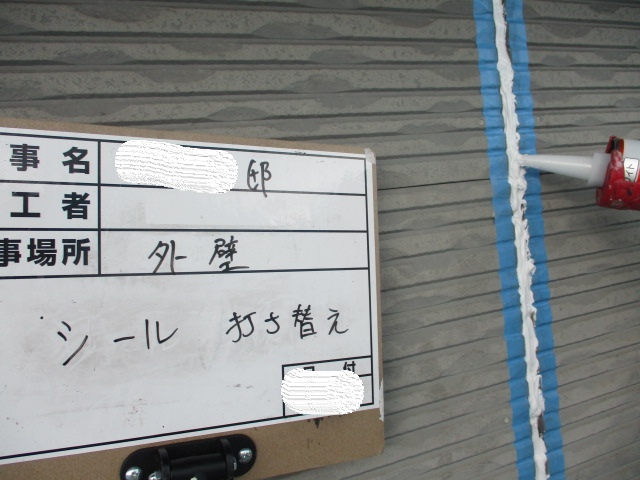 事名 邸
工者
事場所 外壁
シール 打ち替え
付